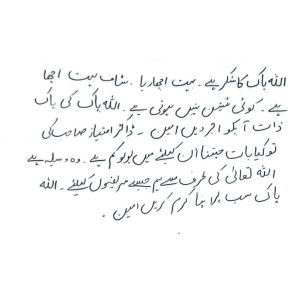 اللہ پاک کا شکر ہے۔ بہت اچھا رہا۔ سٹاف بہت اچھا
ہے۔ کوئی ٹینشن نہیں ہوئی ہے۔ اللہ پاک کی پاک
ذات آپکو اجر دیں امین۔ ڈاکٹر امتیاز صاحب کی
تو کیا بات جتنا ان کیلئے میں بولو کم ہے۔ وہ وسیلہ ہے
اللہ تعالیٰ کی طرف سے ہم جیسے مریضوں کیلئے۔ اللہ
پاک سب پلا بنا کرم کریں امین۔